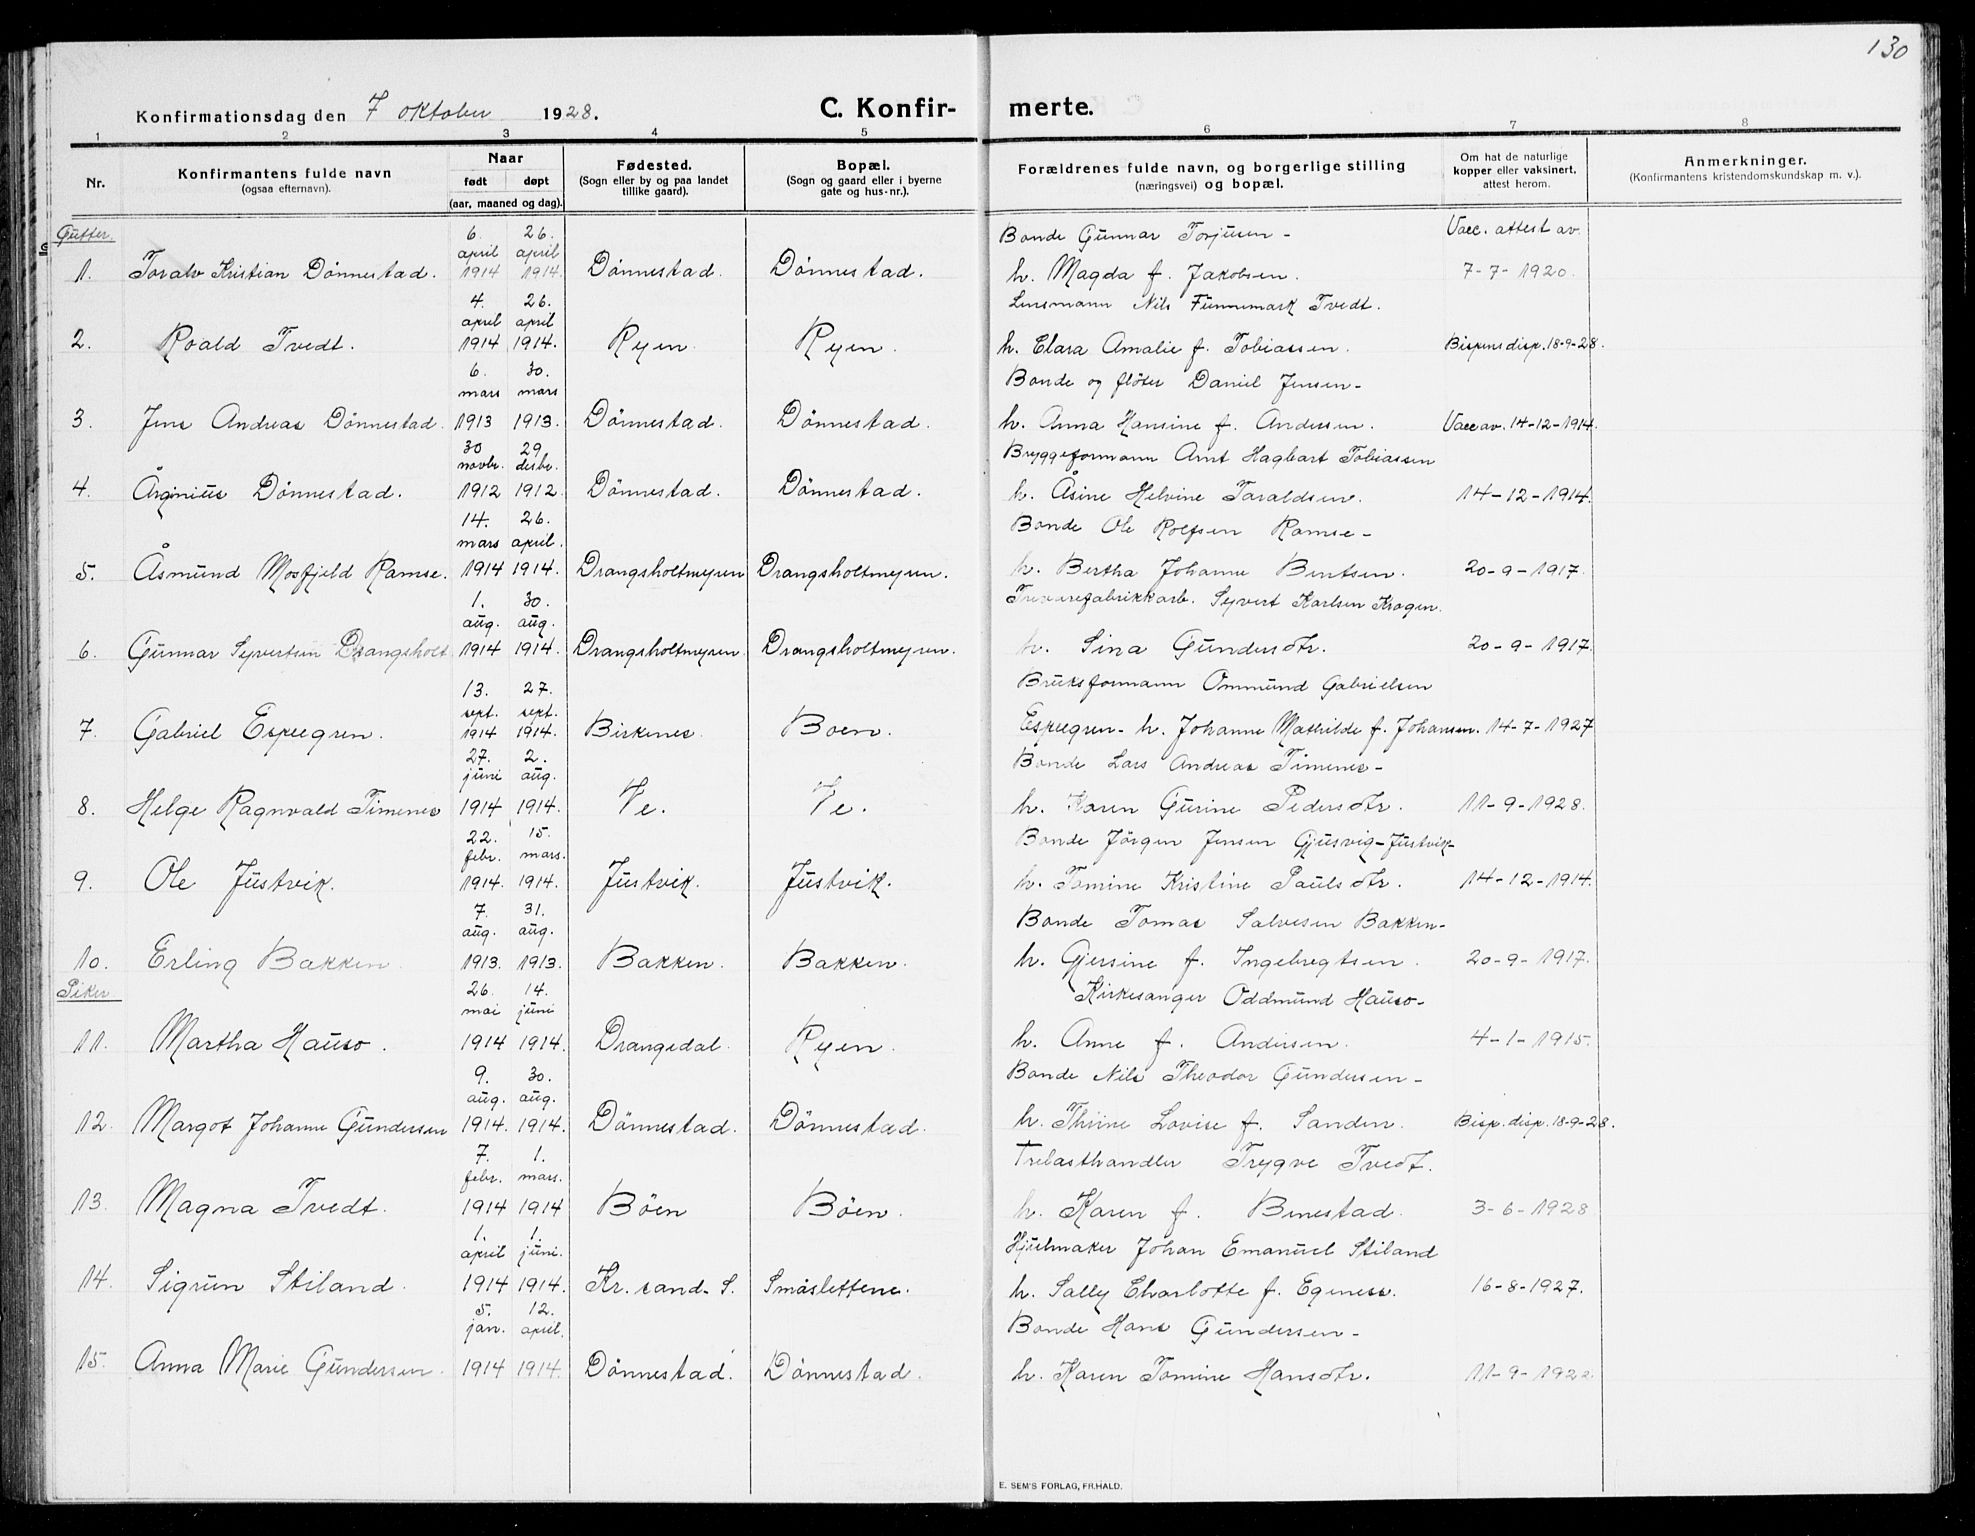 130
Konfirmationsdag den 7 oktober 1928.
C. Konfir- merte.
1 2 3 4 5 6 7 8
Nr.
Konfirmantens fulde navn
(ogsaa efternavn).
Naar
født døpt
(aar, maaned og dag).
Fødested.
(Sogn eller by og paa landet
tillike gaard).
Bopæl.
(Sogn og gaard eller i byerne
gate og hus-nr.).
Forældrenes fulde navn, og borgerlige stilling
(næringsvei) og bopæl.
Om hat de naturlige
kopper eller vaksinert,
attest herom.
Anmerkninger.
(Konfirmantens kristendomskundskap m. v.).
Gutter. 6. 26. Bonde Gunnar Torjusen - Vacc. attest av
april april
1. Toralv Kristian Dönnestad. 1914 1914. Dönnestad. Dönnestad. h. Magda f. Jakobsen. 7-7-1920.
4. 26. Lensmann Nils Funnemark Tvedt.
april april
2. Roald Tvedt. 1914 1914. Ryen. Ryen. h. Clara Amalie f. Tobiassen. Bispens disp. 18-9-28.
6. 30. Bonde og flöter Daniel Jensen-
mars mars
3. Jens Andreas Dönnestad. 1913 1913. Dönnestad. Dönnestad. h. Anna Hansine f. Andersen. Vacc av. 14-12-1914.
30 29 Bryggeformann Arnt Hagbart Tobiassen
novbr. desbr.
4. Årginius Dönnestad. 1912 1912. Dönnestad. Dönnestad. h. Åsine Helvine Taraldsen. 14-12-1914.
14. 26. Bonde Ole Rolfsen Ramse-
mars april.
5. Åsmund Mosfjeld Ramse. 1914 1914. Drangsholtmyren Drangsholtmyren. h. Bertha Johanne Bentsen. 20-9-1917.
1. 30. Trevarefabrikkarb. Syvert Karlsen Krogen.
aug. aug.
6. Gunnar Syvertsen Drangsholt 1914 1914. Drangsholtmyren. Drangsholtmyren. h. Sina Gundersdtr. 20-9-1917.
13. 27. Bruksformann Ommund Gabrielsen
sept. sept.
7. Gabriel Espegren. 1914 1914. Birkenes. Boen. Espegren- h. Johanne Mathilde f. Johansen. 14-7-1927
27. 2. Bonde Lars Andreas Timenes-
juni aug.
8. Helge Ragnvald Timenes 1914 1914. Ve. Ve. h. Karen Gurine Pedersdtr. 11-9-1928.
22. 15. Bonde Jörgen Jensen Gjusvig-Justvik-
febr. mars.
9. Ole Justvik. 1914. 1914. Justvik. Justvik. h. Tomine Kristine Paulsdtr. 14-12-1914.
7. 31. Bonde Tomas Salvesen Bakken-
aug. aug.
10. Erling Bakken. 1913. 1913. Bakken. Bakken. h. Gjersine f. Ingebregtsen. 20-9-1917.
Piker. 26. 14. Kirkesanger Oddmund Hauso-
mai juni
11. Martha Hauso. 1914 1914. Drangedal. Ryen. h. Anne f. Andersen. 4-1-1915.
9. 30. Bonde Nils Theodor Gundersen-
aug. aug.
12. Margot Johanne Gundersen 1914. 1914. Dönnestad. Dönnestad. h. Thrine Lovise f. Sanden. Bisp. disp. 18-9-28.
7. 1. Trelasthandler Trygve Tvedt.
febr. mars.
13. Magna Tvedt. 1914 1914 Böen Böen. h. Karen f. Benestad. 3-6-1928
1. 1. Hjulmaker Johan Emanuel Stiland
april juni.
14. Sigrun Stiland. 1914 1914. Kr.sand. S. Småslettene. h. Sally Charlotte f. Egeness. 16-8-1927.
5. 12. Bonde Hans Gundersen-
jan. april.
15. Anna Marie Gundersen. 1914 1914. Dönnestad. Dönnestad. h. Karen Tomine Hansdtr. 11-9-1922.
E. SEM'S FORLAG, FR.HALD.